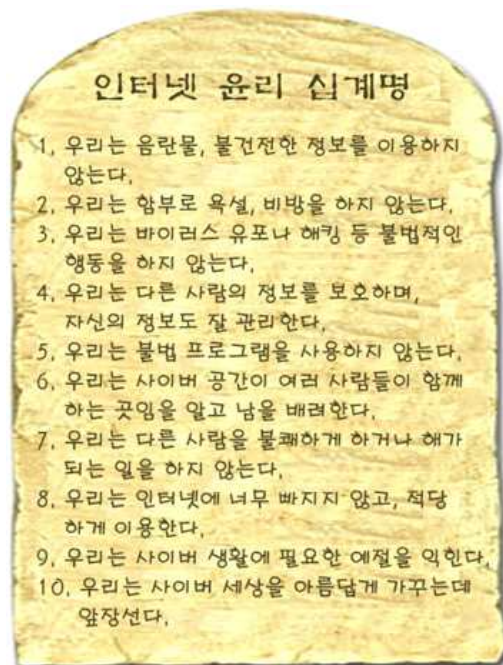 인터넷 윤리 십계명
1, 우리는 음란물, 불건전한 정보를 이용하지
않는다,
2, 우리는 함부로 욕설, 비방을 하지 않는다,
3, 우리는 바이러스 유포나 해킹 등 불법적인
행동을 하지 않는다,
4, 우리는 다른 사람의 정보를 보호하며,
자신의 정보도 잘 관리한다,
5, 우리는 불법 프로그램을 사용하지 않는다,
6, 우리는 사이버 공간이 여러 사람들이 함께
하는 곳임을 알고 남을 배려한다,
7, 우리는 다른 사람을 불쾌하게 하거나 해가
되는 일을 하지 않는다,
8, 우리는 인터넷에 너무 빠지지 않고, 적당
하게 이용한다,
9, 우리는 사이버 생활에 필요한 예절을 익힌다,
10, 우리는 사이버 세상을 아름답게 가꾸는데
앞장선다,